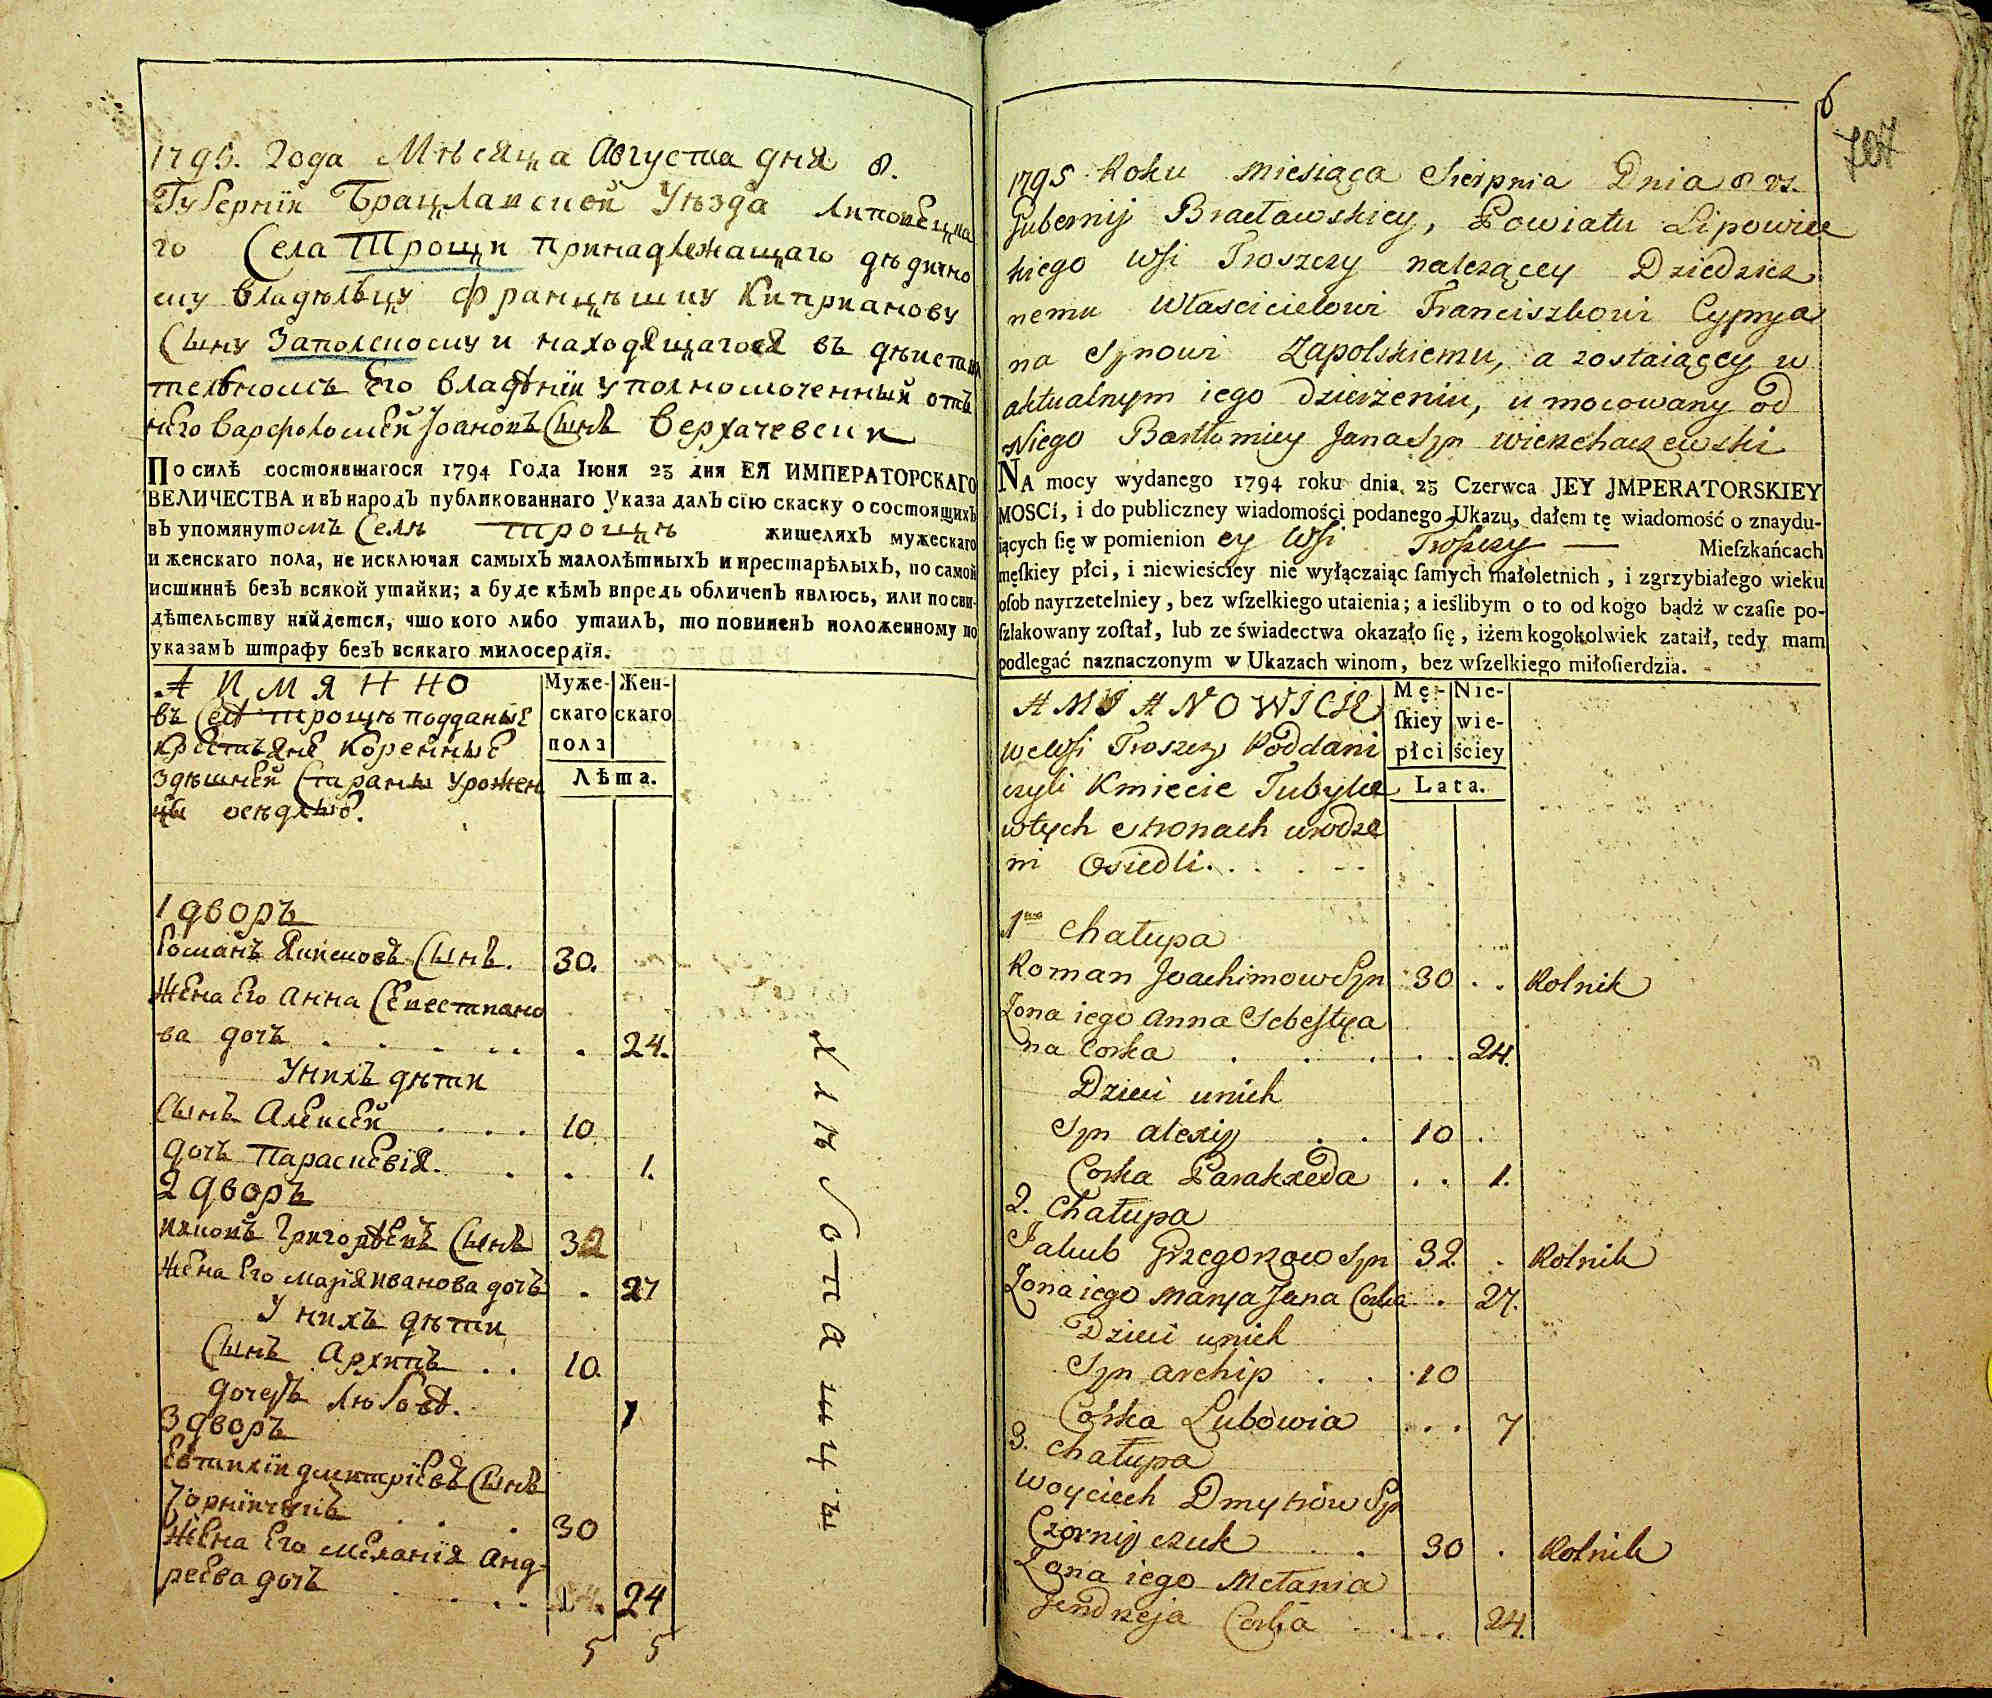 1795. Года Мѣсяца Августа дня 8.
Губерніи Брацлавской Уѣзда Липовецка
го Села Трощи принадлежащаго дѣдично
му владѣльцу Францѣшку Киприанову
Сыну Запольскому и находящагося въ дѣистви
тельномъ Его владѣніи уполномоченный отъ
него Варфоломей Іоановъ Сынъ Верхачевски
По силѣ состоявшагося 1794 Года Іюня 23 дня ЕЯ ИМПЕРАТОРСКАГО
ВЕЛИЧЕСТВА и въ народъ публикованнаго Указа далъ сію скаску о состоящихъ
въ упомянутомъ Селѣ Трощѣ жителяхъ мужескаго
и женскаго пола, не исключая самыхъ малолѣтныхъ и престарѣлыхъ, по самой
истиннѣ безъ всякой утайки; а буде кѣмъ впредь обличенъ явлюсь, или по сви-
дѣтельству найдется, что кого либо утаилъ, то повиненъ положенному по
указамъ штрафу безъ всякаго милосердія.
А ИМЯННО
въ Селѣ Трощѣ подданые
крестьянѣ Коренные
здѣшней Стараны Урожен
цы осѣдлые.
Муже-
скаго
пола
Жен-
скаго
Лѣта.
1 дворъ
Романъ Якимовъ Сынъ. 30.
Жена Его Анна Севестиано
ва дочъ . . . . . . 24.
У нихъ дѣти
Сынъ Алексей . . . 10
дочъ Параскевія. . . 1.
2 дворъ
Яковъ Григорьевъ Сынъ 32
Жена Его Марія Иванова дочъ . 27
У нихъ дѣти
Сынъ Архипъ . . 10.
дочеръ Любовь. 7
3 дворъ
Евтихіи Дмитріевъ Сынъ
Чорнійчукъ . . . 30
Жена Его Меланія Анд-
реева дочъ . . . . 24
5 5
6
707
1795 Roku Miesiąca Sierpnia Dnia 8 vs.
Gubernij Bracławskiey, Powiatu Lipowiec
kiego Wsi Troszczy należącey Dziedzicz
nemu Właścicielowi Franciszkowi Cyprya
na Synowi Zapolskiemu, a zostaiącey w
aktualnym iego dzierżeniu, umocowany od
Niego Bartłomiey Jana Syn Wierzchaczewski
NA mocy wydanego 1794 roku dnia 23 Czerwca JEY JMPERATORSKIEY
MOSCi, i do publiczney wiadomości podanego Ukazu, dałem tę wiadomość o znaydu-
iących ſię w pomienioney Wsi Troszczy — Mieſzkańcach
męſkiey płci, i niewieściey nie wyłączaiąc ſamych małoletnich, i zgrzybiałego wieku
oſob nayrzetelniey, bez wſzelkiego utaienia; a ieślibym o to od kogo bądź w czaſie po-
ſzlakowany zoſtał, lub ze świadectwa okazało ſię, iżem kogokolwiek zataił, tedy mam
podlegać naznaczonym w Ukazach winom, bez wſzelkiego miłoſierdzia.
A MIANOWICIE
we Wsi Troszczy Poddani
czyli Kmiecie Tubylce
w tych stronach urodze
ni Osiedli. . . . .
Mę-
ſkiey
płci
Nie-
wie-
ściey
Lata.
1mo Chałupa
Roman Joachimow Syn 30 . . Rolnik
Zona iego Anna Sebestya
na Corka . . . . . 24.
Dzieci u nich
Syn Alexiy . . 10 .
Corka Parakxeda . . 1.
2. Chałupa
Jakub Grzegorzow Syn 32. . Rolnik
Zona iego Marya Jana Corka . 27.
Dzieci u nich
Syn Archip . . 10
Corka Lubowia . . . 7
3. Chałupa
Woyciech Dmytrów Syn
Czorniyczuk . . 30 . Rolnik
Zona iego Mełania
Jendrzeja Corka . . . . 24.